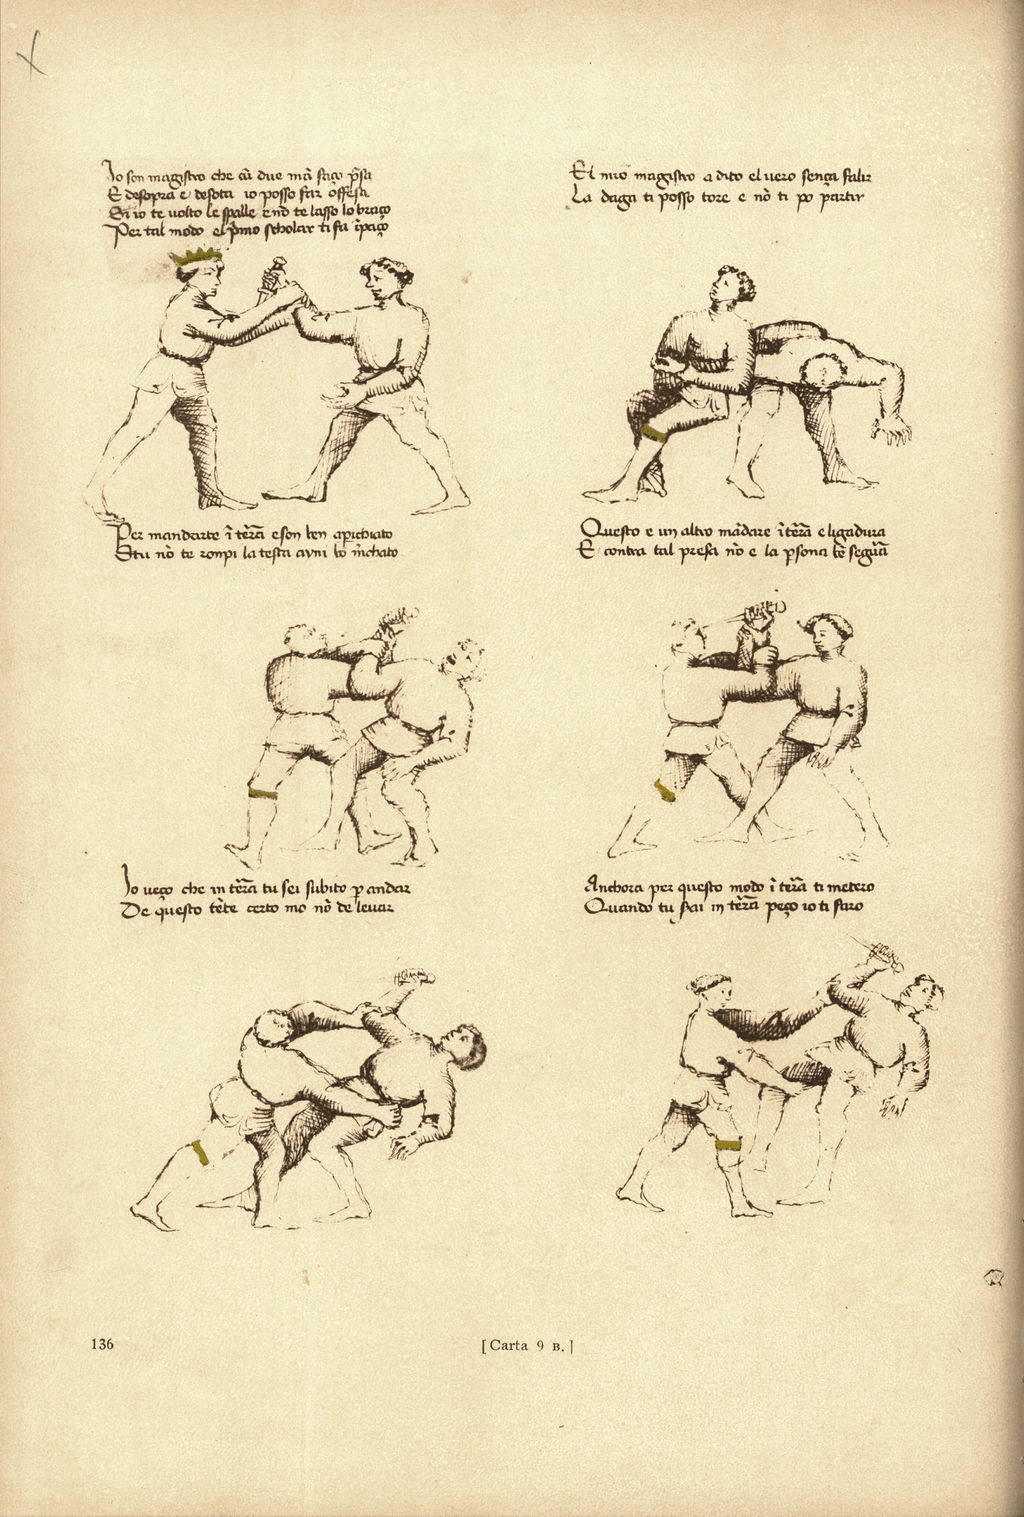 Io son magistro che cũ due mã faço p̃sa
E desopra e desota io posso far offesa
Si io te volto le spalle e nõ te lasso lo braço
Per tal modo el p̃mo scholar ti fa ĩpaço
El mio magistro a dito el vero sença falir
La daga ti posso tore e nõ ti po partir
Per mandarte ĩ tẽra e son ben apichiato
Stu nõ te rompi la testa avrai bõ m̃chato
Questo e un altro mãdare ĩ tẽra e ligadura
E contra tal presa nõ e la p̃sona bẽ segũa
Io veço che in tẽra tu sei subito p andar
De questo tẽte certo mo nõ de levar
Anchora per questo modo ĩ tẽra ti metero
Quando tu sarai in tẽra peço io ti faro
136
[Carta 9 B.]